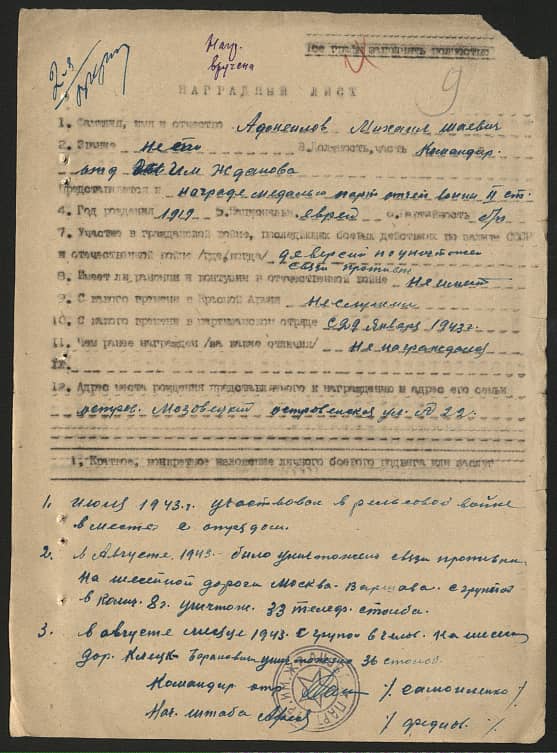 Нагр.
вручена
Все графы заполнять полностью
9
НАГРАДНЫЙ ЛИСТ
1. Фамилия, имя и отчество Михаил
2. Звание не 3. Должность, часть Командир
отд им Жданова
Представляется к награде медалью парт отеч войны II ст.
4. Год рождения 1919 5. Национальн. еврей 6. партийность б/п
7. Участие в гражданской войне, последующих боевых действиях по защите СССР
и отечественной войне /где, когда/ диверсии по
связи против
8. Имеет ли ранения и контузии в отечественной войне Не имеет
9. С какого времени в Красной Армии Не служил
10. С какого времени в партизанском отряде С января 1943 г.
11. Чем ранее награжден /за какие отличия/ Не награждался
12. Адрес места рождения представляемого к награждению и адрес его семьи
остров. Мазовецкий островенская ул. № 22.
1. Краткое, конкретное изложение личного боевого подвига или заслуг
1. июля 1943 г. участвовал в рельсовой войне
вместе с отрядом.
2. в Августе 1943 было уничтожено связи противни.
На шосейной дороги Москва-Варшава. с групой
в колич. 8 г. уничтож. 33 телеф. столба.
3. в августе месяце 1943 с групой 6 чел. На шосей
дор. Клецк-Баранович уничтожено 36 столбов.
Командир отр. / Самойленко /
Нач. штаба / Феднов. /